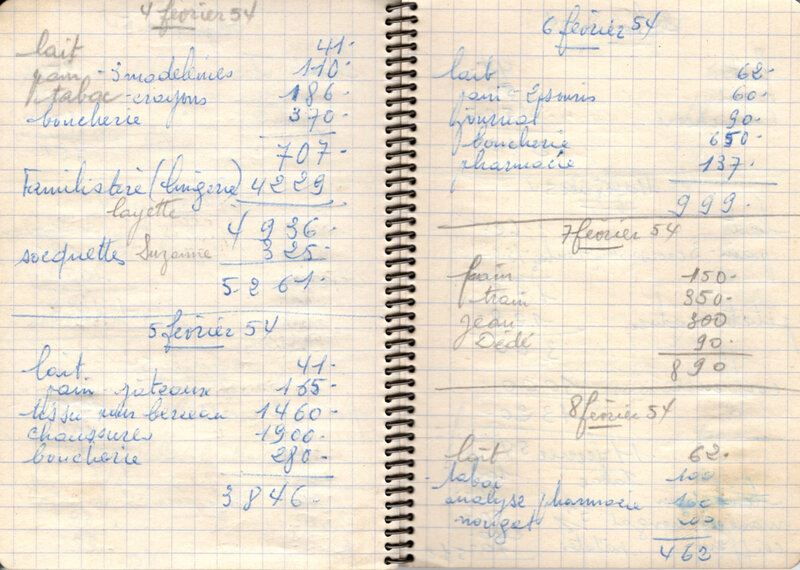 4 février 54
lait 41-
pain - 3 madeleines 110-
tabac - crayons 186-
boucherie 370-
707-
Familistère (lingerie) 4229
layette
4936-
socquettes Suzanne 325-
5261-
5 février 54
lait 41-
pain gateaux 165-
tissu pour berceau 1460-
chaussures 1900-
boucherie 280-
3846-
6 février 54
lait 62-
pain - 2 souris 60-
journal 90-
boucherie 650-
pharmacie 137-
999-
7 février 54
pain 150-
train 350-
Jean 300
Dédé 90-
890
8 février 54
lait 62-
tabac 100
analyse pharmacie 100
nougat 200
462